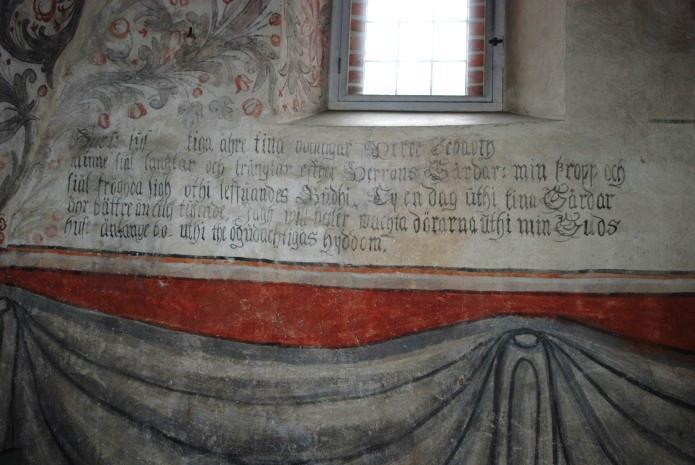 liga ähre tina Herre Zebaoth
minne siäl längtar och trängtar effter Herrans Gårdar: min kropp och
siäl frögdda sigh uthi leffuandes Gudhi. Ty en dag uthi tina Gårdar
är bättre än elliest tusende. Jagh will heller wachta dörarna uthi min Guds
huss än länge bo uthi the Gudachtigas hyddom.